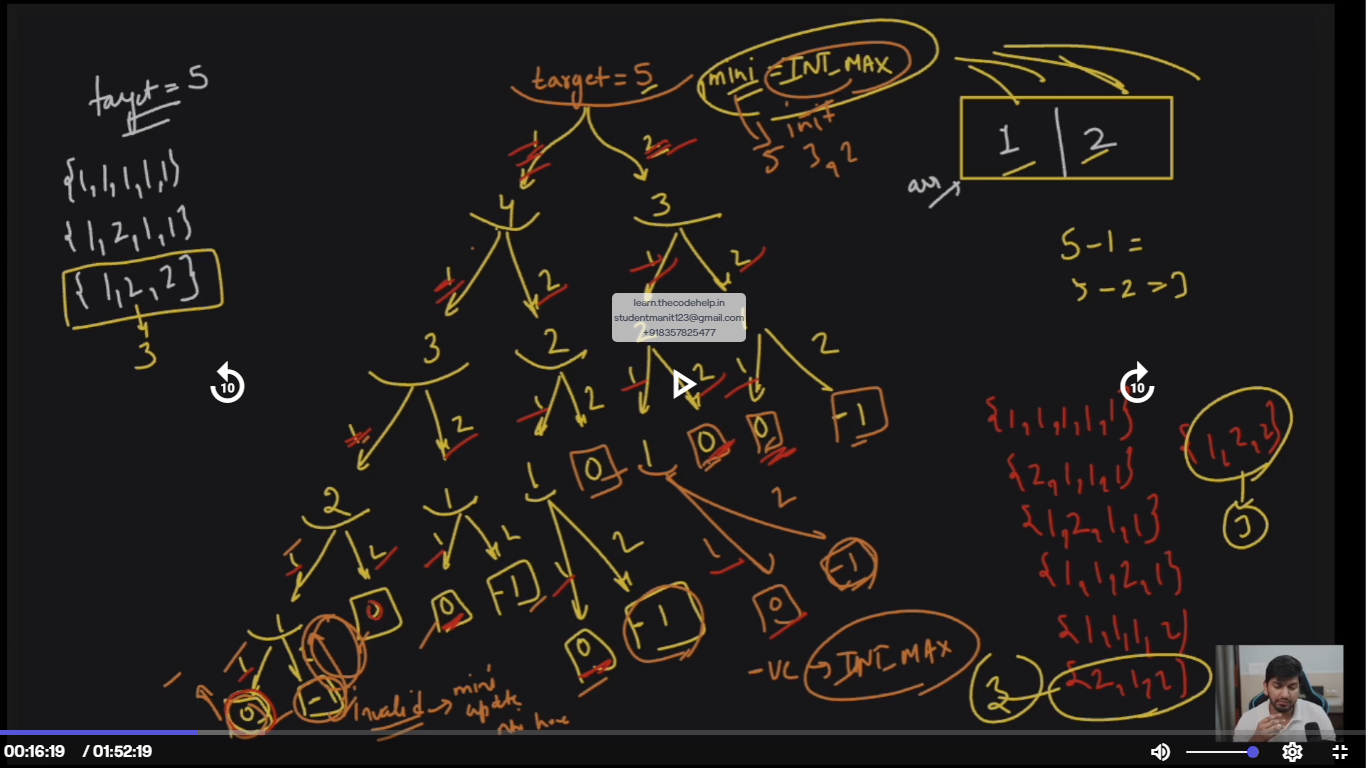 target = 5
{1,1,1,1,1}
{1,2,1,1}
{1,2,2}
3
target = 5
mini = INT_MAX
init
5 3, 2
1 2
4 3
1 2 1 2
3 2 2 1
1 2 1 2 1 2 1 2
2 1 1 0 1 0 0 -1
1 2 1 2 1 2 1 2
1 0 0 -1 0 -1 0 -1
1
0 -1
Invalid → mini
update
-ve → INT_MAX
1 2
arr
5 - 1 =
5 - 2 = 3
{1,1,1,1,1}
{2,1,1,1}
{1,2,1,1}
{1,1,2,1}
{1,1,1,2}
{2,1,2}
{1,2,2}
3
3
learn.thecodehelp.in
studentmanit123@gmail.com
+918357825477
10
10
00:16:19 / 01:52:19